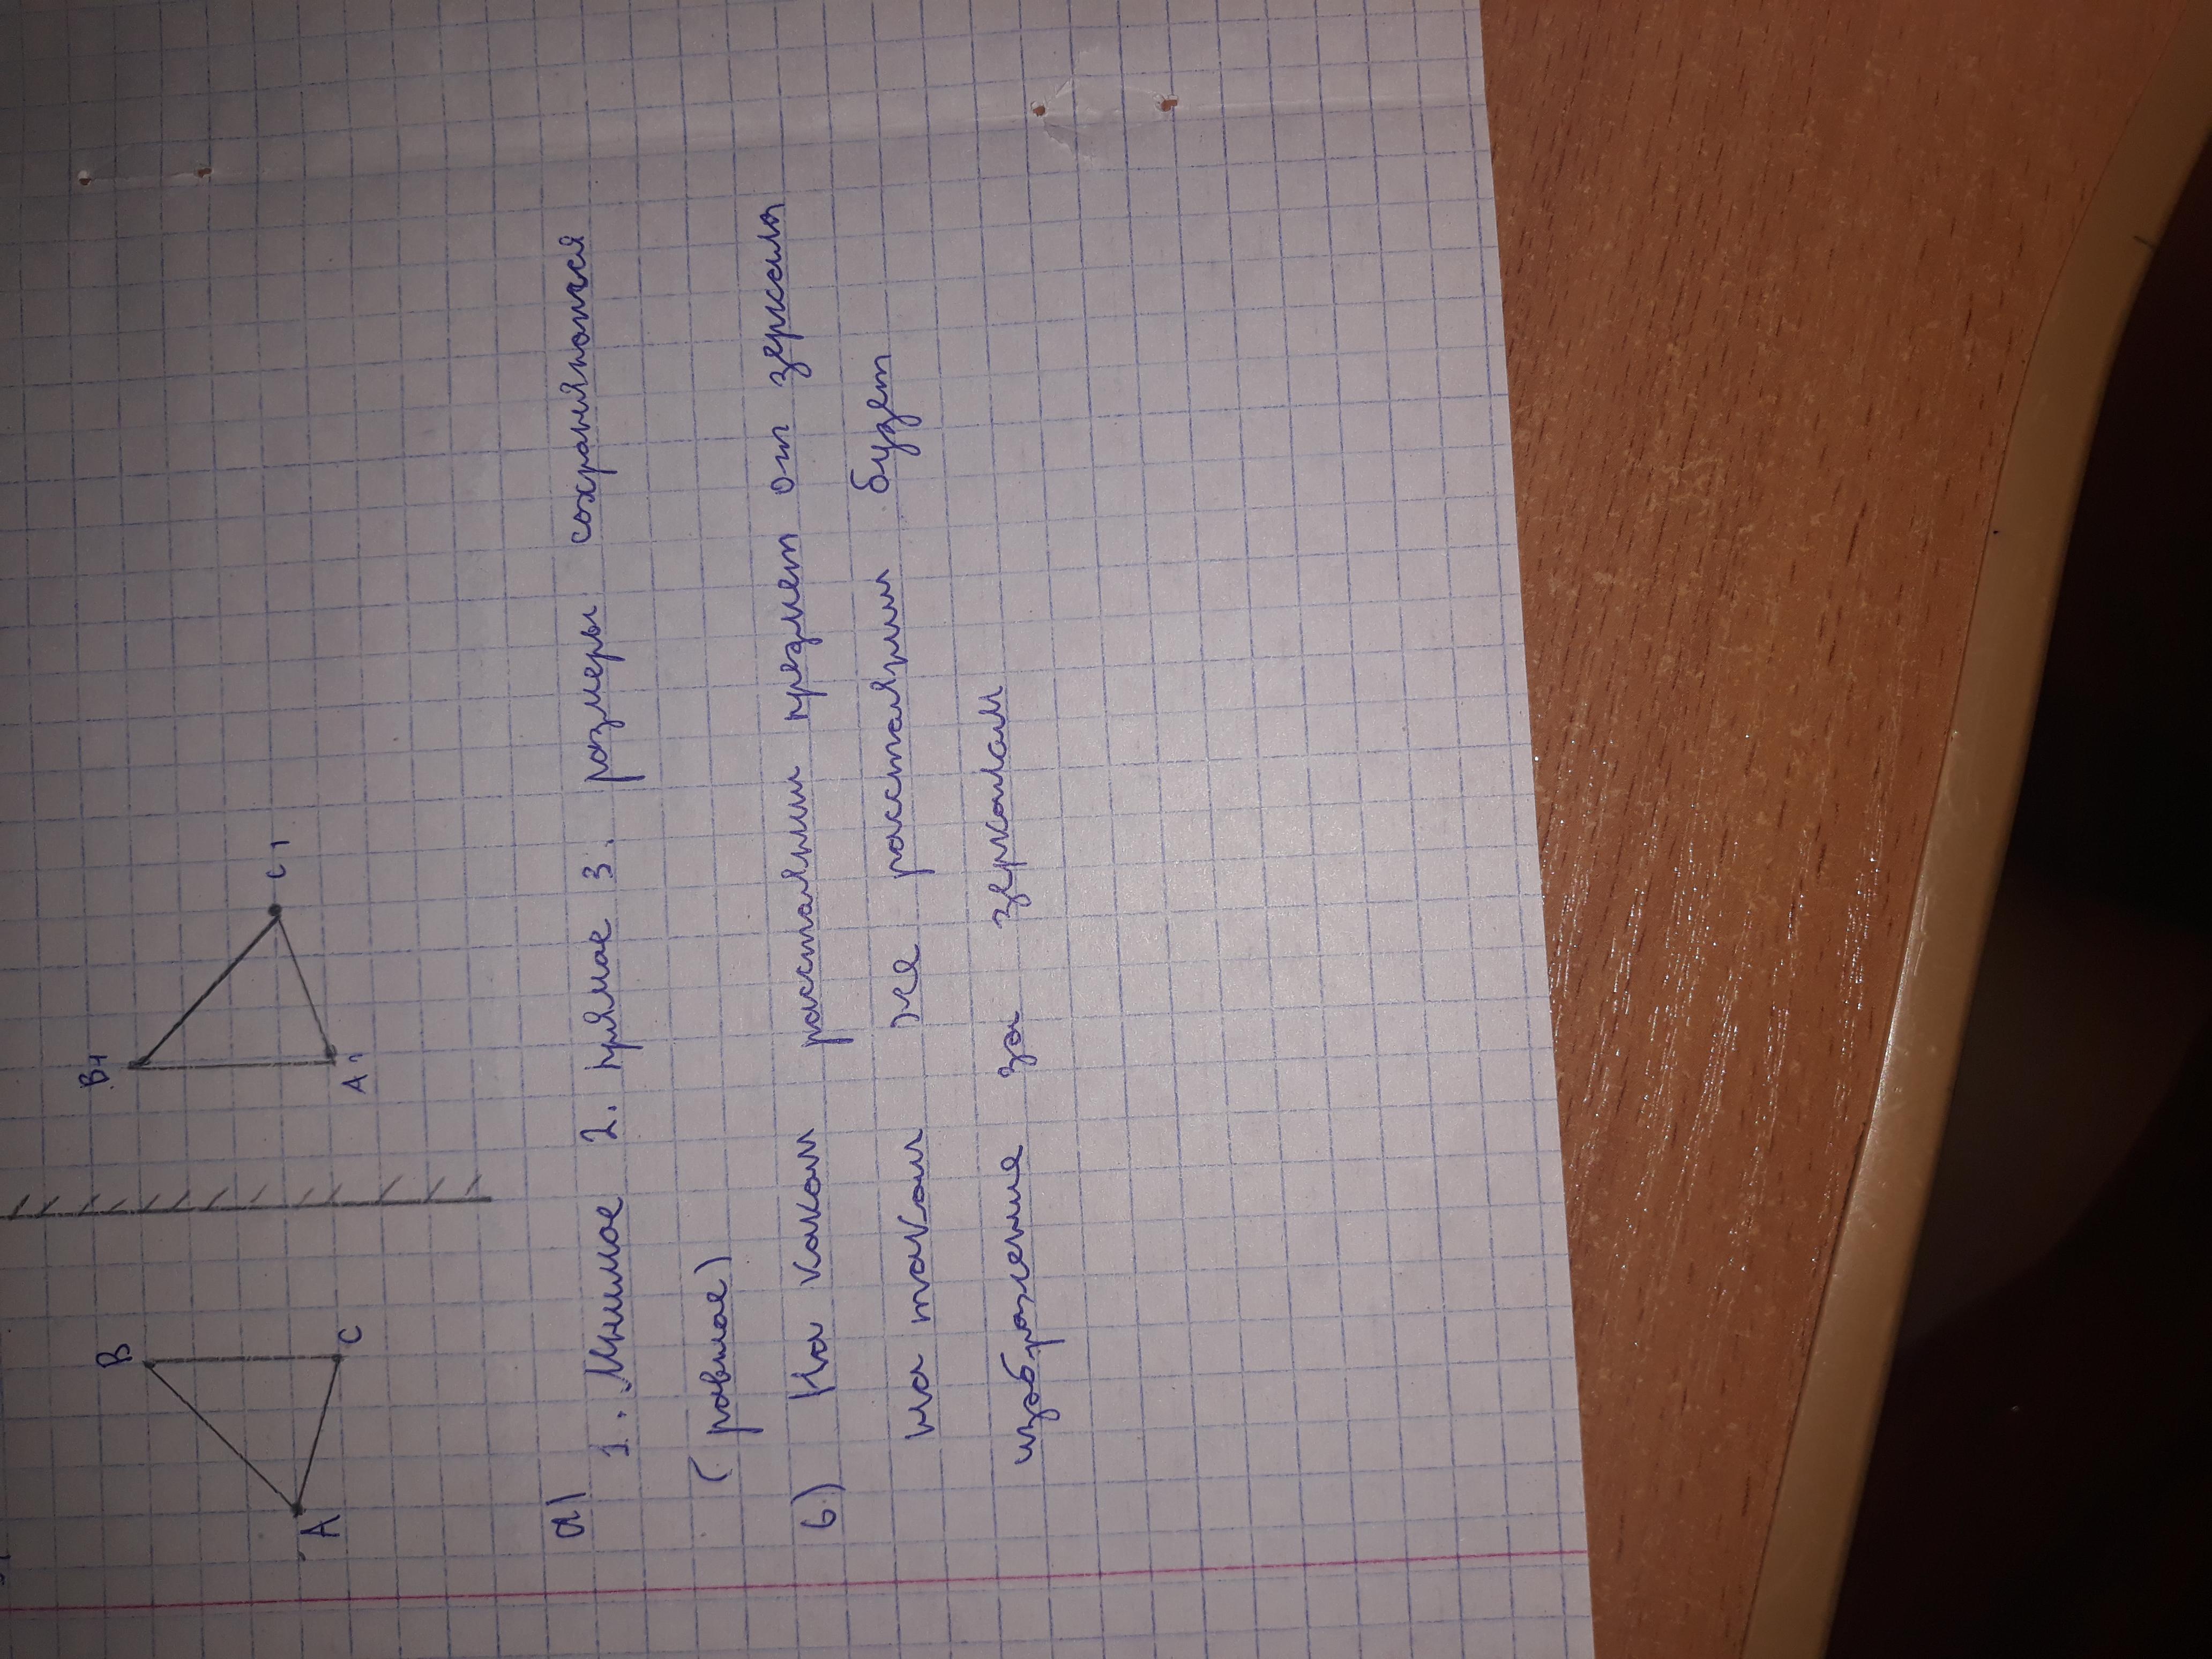 B
A
C
B1
A1
C1
а)
1. Мнимое 2. прямое 3. размеры сохраняются
(равное)
б) На каком расстаянии предмет от зеркала
на таком же расстаянии будет
изображение за зеркалам